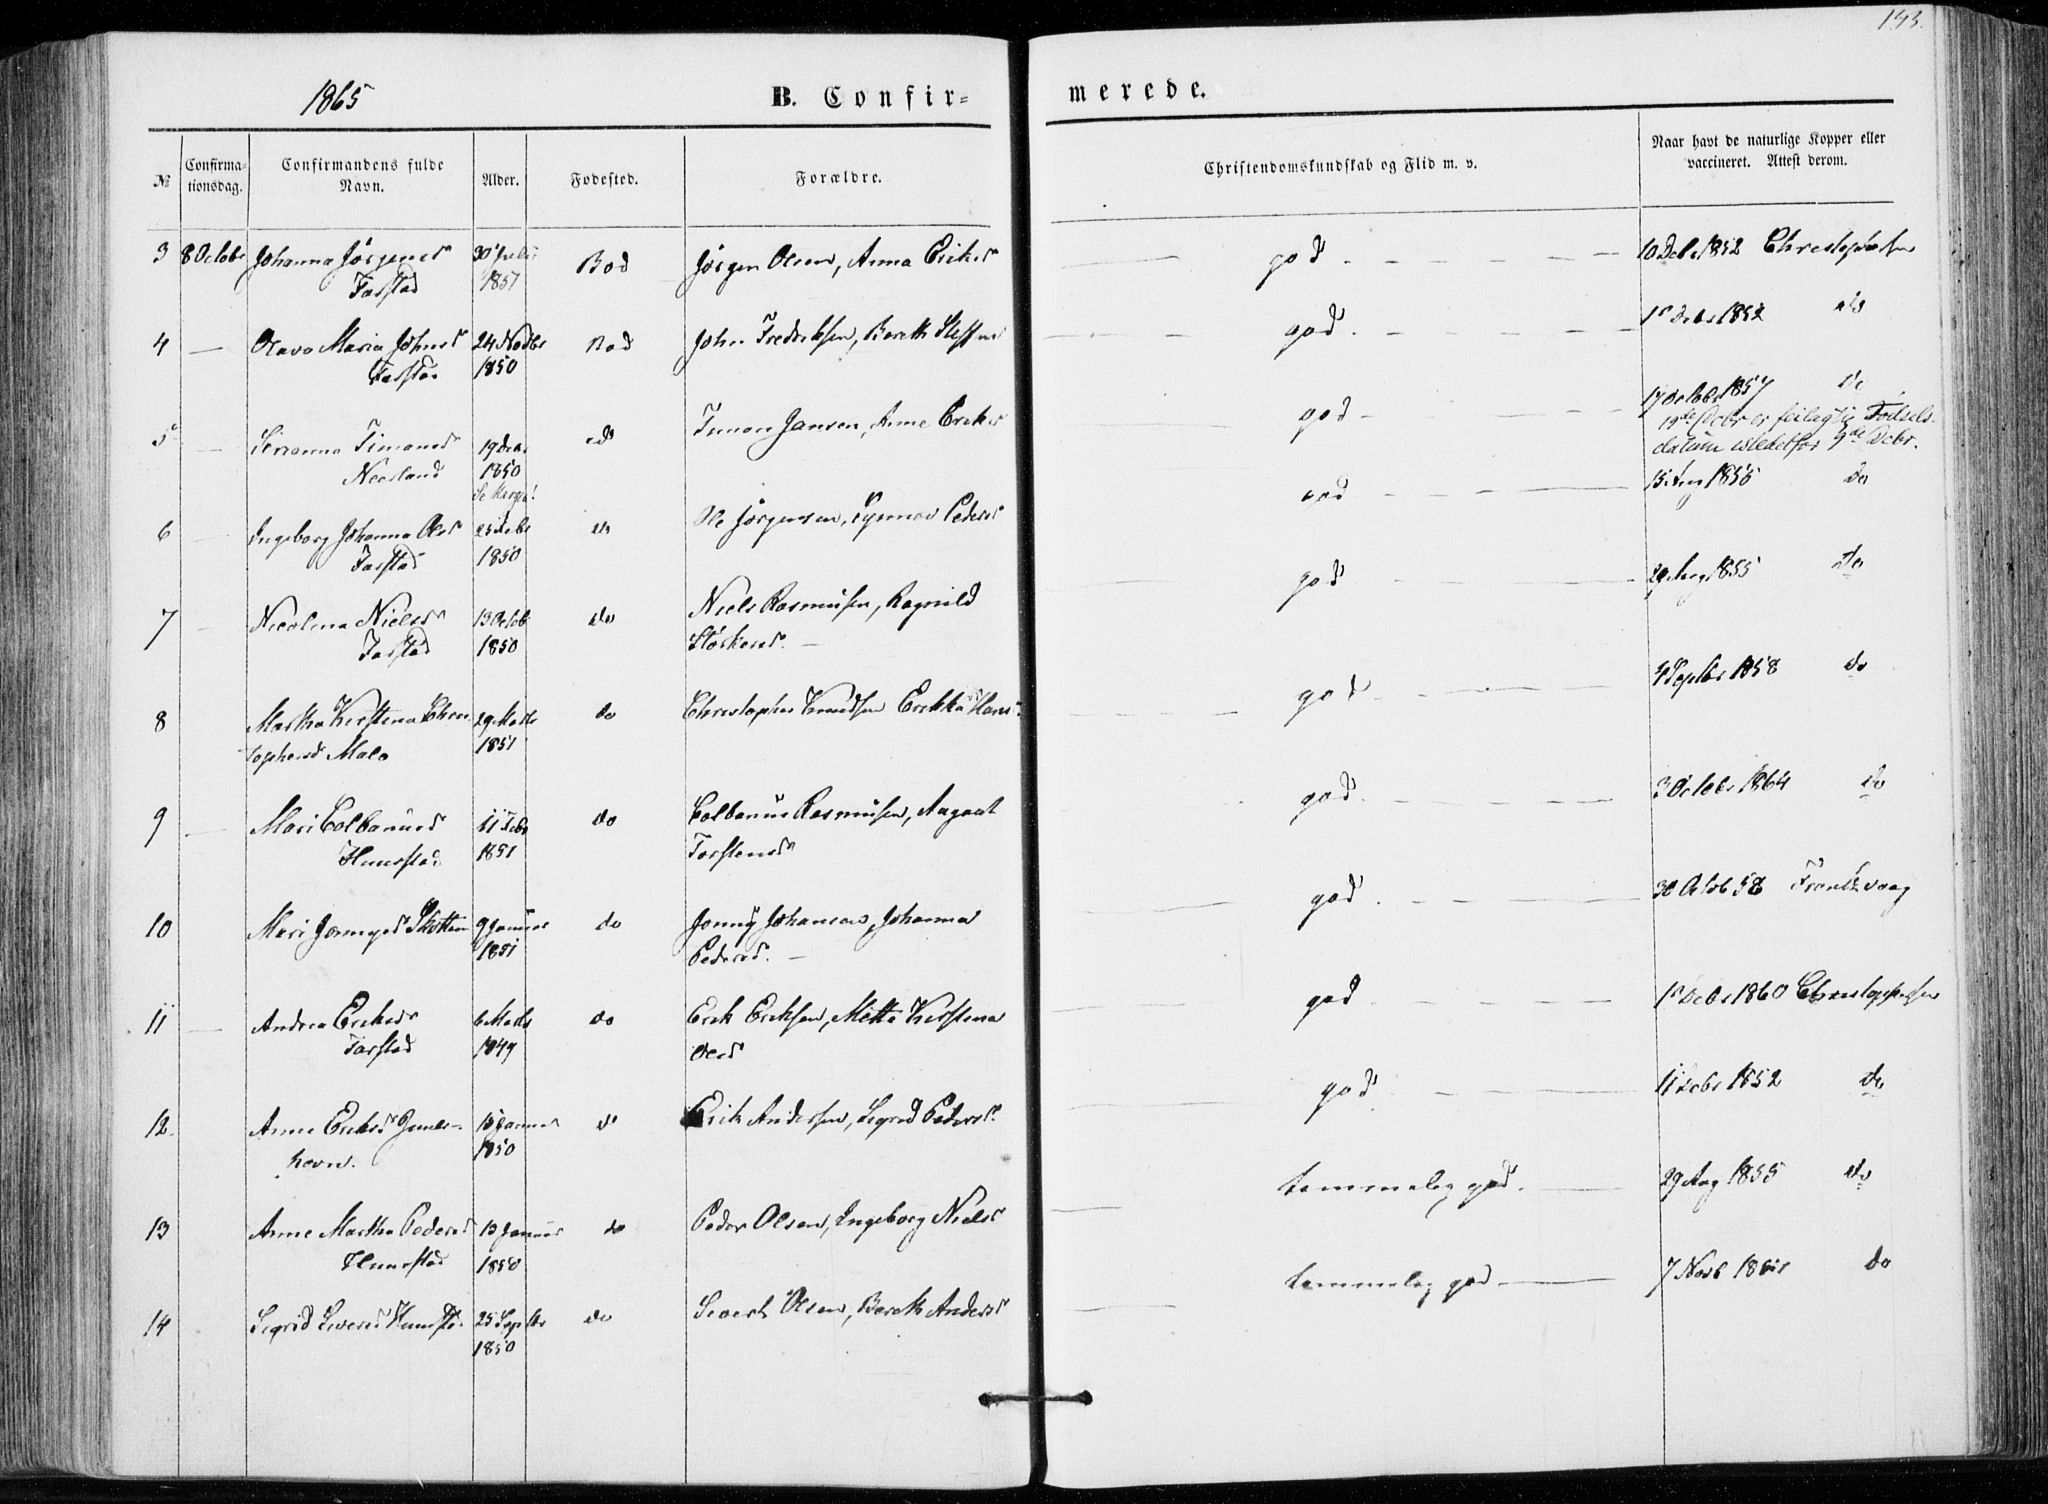 133.
1865
B. Confir=
merede.
№
Confirma-
tionsdag.
Confirmandens fulde
Navn.
Alder.
Fødested.
Forældre.
Christendomskundskab og Flid m. v.
Naar havt de naturlige Kopper eller
vaccineret. Attest derom.
3 8 Octobr Johanna Jørgensd 30 Juli Bod Jørgen Olsen, Anna Eriksd god 10 Debr 1852 Christophersen
Farstad 1851
4 — Olava Maria Johnsd 24 Novbr Bod John Fredriksen, Bereth Steffensd god 1852 do
Farstad 1850
5 — Timansd 19 Debr do Timan Jansen, Anne Eriksd god 17 Octobr 1857 do
Neerland 1850
Se Margen!
19de Debr er feilagtig Fødsels-
datum istedetfor 9de Debr.
6 — Ingeborg Johanna Olsd do Ole Jørgensen, Synnøv Pedersd god 15 Aug 1855 do
Farstad 1850
7 — Nicolina Nielsd 13 Octob do Niels Rasmusen, Ragnild god 29 Aug 1855 do
Farstad 1850 Størkersd. —
8 Martha Kirstina Chris 29 Marts do Christopher Knudsen Erikka Hansd god 4 Septbr 1858 do
tophersd Male 1851
9 — Mari Colbanusd 11 Febr do Colbanus Rasmusen, Aagaat god 3 Octobr 1864 do
Hunstad 1851 Torstensd
10 Mari Jonnyesd Skotten 9 Januar do Jonny Johansen, Johanna god 30 Octob 58 Frantzvaag
1851 Pedersd. —
11 — Andrea Eriksd 6 Marts do Erik Eriksen, Mette Kirstina god 1860 Christophersen
Farstad 1849 Olsd
12. Anne Eriksd 15 Januar do Erik Andersen, Sigrid Pedersd god 11 Debr 1852 do
havn. 1850
13 Anne Martha Pedersd 13 Januar do Peder Olsen, Ingeborg Nielsd temmelig god. — 29 Aug 1855 do
Hunstad 1850
14 Sigrid Siversd Hunstad 25 Septbr do Sivert Olsen, Bereth Andersd temmelig god — 7 Novb do
1850